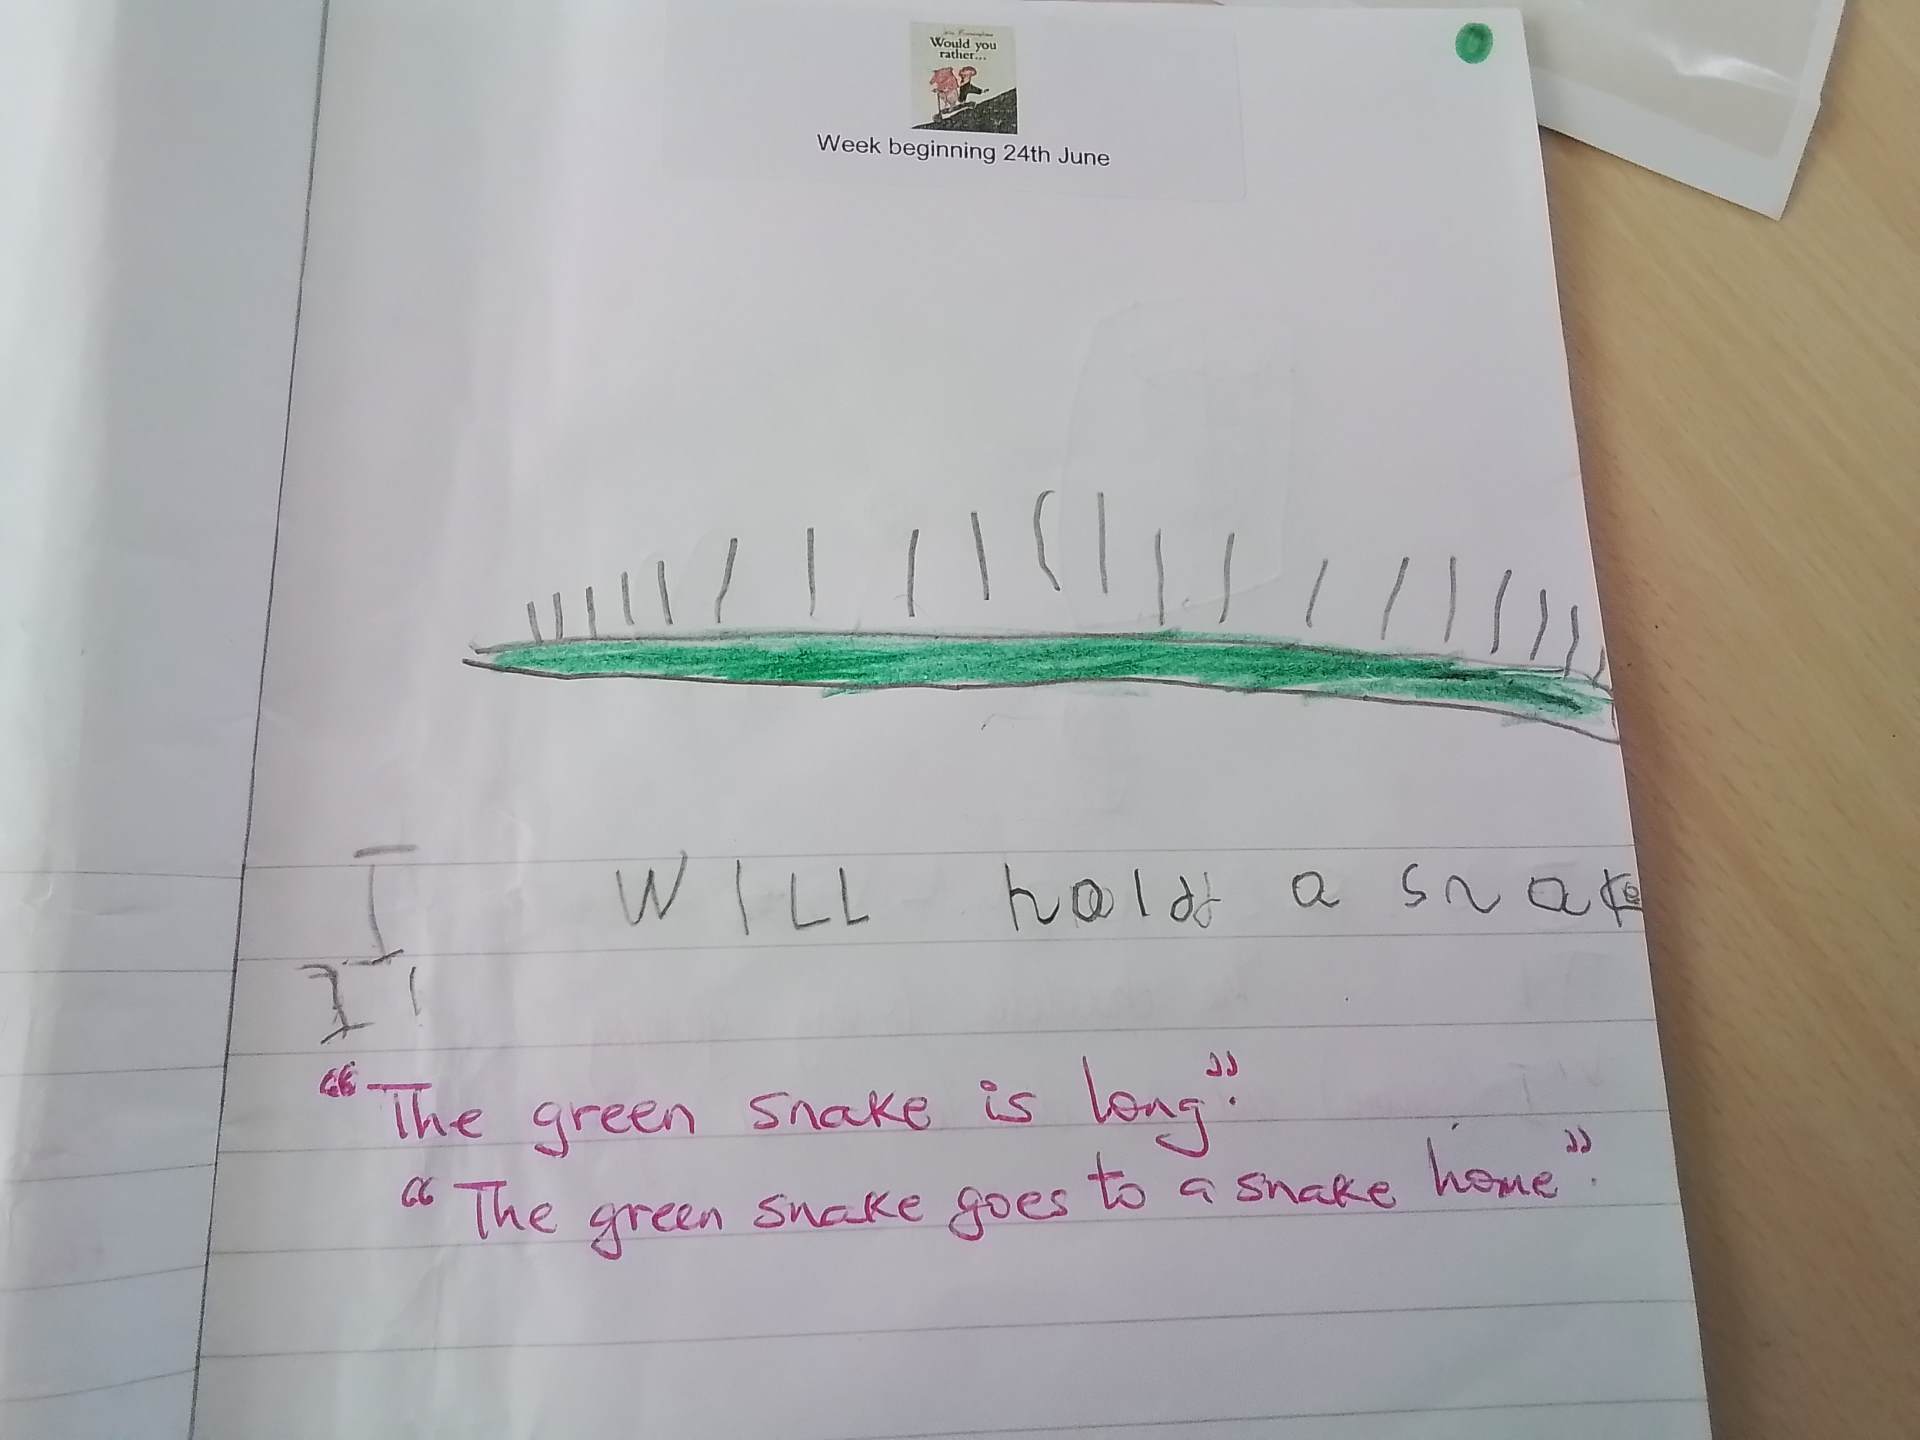 Would you
rather...
Week beginning 24th June
I WILL hold a snake
I I
"The green snake is long".
"The green snake goes to a snake home".